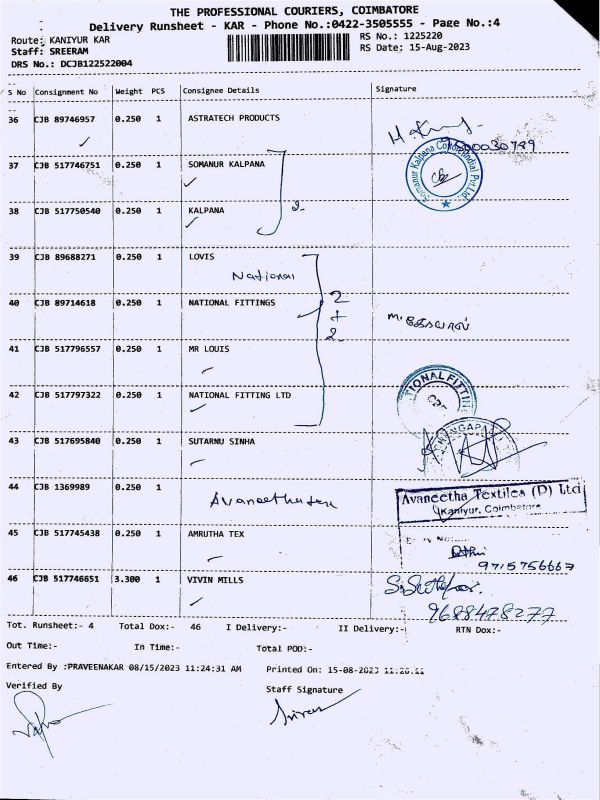 THE PROFESSIONAL COURIERS, COIMBATORE
Delivery Runsheet - KAR - Phone No.:0422-3505555 - Page No.:4
Route: KANIYUR KAR
RS No.: 1225220
Staff: SREERAM
RS Date; 15-Aug-2023
DRS No.: DCJB122522004
S No Consignment No Weight PCS Consignee Details Signature
36 CJB 89746957 0.250 1 ASTRATECH PRODUCTS
37 CJB 517746751 0.250 1 SOMANUR KALPANA
Somanur Kalpana Pvt Ltd
38 CJB 517750540 0.250 1 KALPANA
2
39 CJB 89688271 0.250 1 LOVIS
National
40 CJB 89714618 0.250 1 NATIONAL FITTINGS
2
+
2
41 CJB 517796557 0.250 1 MR LOUIS
42 CJB 517797322 0.250 1 NATIONAL FITTING LTD
43 CJB 517695840 0.250 1 SUTARNU SINHA
44 CJB 1369989 0.250 1
Avaneetha Textiles (P) Ltd
Kaniyur, Coimbatore
45 CJB 517745438 0.250 1 AMRUTHA TEX
9715756667
46 CJB 517746651 3.300 1 VIVIN MILLS
9688478277
Tot. Runsheet:- 4 Total Dox:- 46 I Delivery:- II Delivery:- RTN Dox:-
Out Time:- In Time:- Total POD:-
Entered By :PRAVEENAKAR 08/15/2023 11:24:31 AM Printed On: 15-08-2023
Verified By
Staff Signature